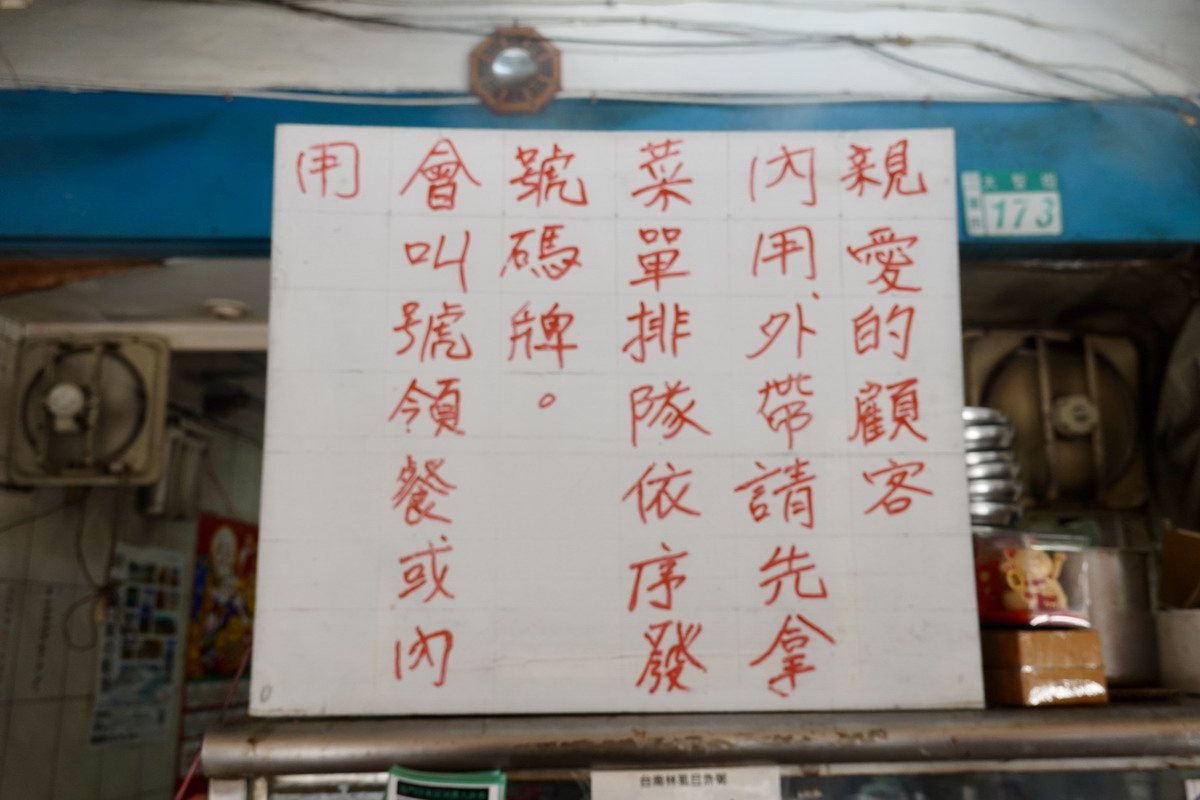 親愛的顧客
內用、外帶請先拿
菜單排隊依序發
號碼牌。
會叫號領餐或內
用
173